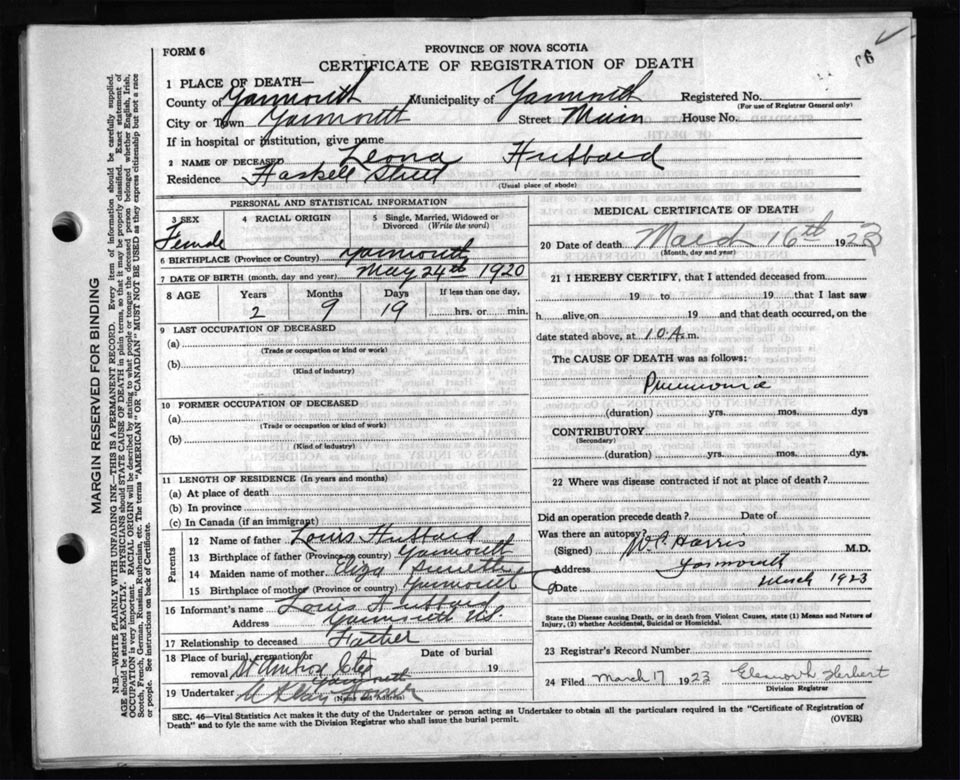 FORM 6
66
PROVINCE OF NOVA SCOTIA
CERTIFICATE OF REGISTRATION OF DEATH
MARGIN RESERVED FOR BINDING
N.B.—WRITE PLAINLY WITH UNFADING INK—THIS IS A PERMANENT RECORD. Every item of information should be carefully supplied.
AGE should be stated EXACTLY. PHYSICIANS should STATE CAUSE OF DEATH in plain terms, so that it may be properly classified. Exact statement of
OCCUPATION is very important. RACIAL ORIGIN will be described by stating to what people or tongue the deceased person belonged whether English, Irish,
Scotch, French, German, Russian, Ruthenian, etc. The terms "AMERICAN" OR "CANADIAN" MUST NOT BE USED as they express citizenship but not a race
or people. See instructions on back of Certificate.
1 PLACE OF DEATH—
County of Yarmouth Municipality of Yarmouth Registered No.
(For use of Registrar General only)
City or Town Yarmouth Street Main House No.
If in hospital or institution, give name
2 NAME OF DECEASED Leona Hubbard
Residence Haskell Street
(Usual place of abode)
PERSONAL AND STATISTICAL INFORMATION
3 SEX Female
4 RACIAL ORIGIN
5 Single, Married, Widowed or Divorced (Write the word)
6 BIRTHPLACE (Province or Country) Yarmouth
7 DATE OF BIRTH (month, day and year) May 24th 1920
8 AGE Years Months Days If less than one day,
2 9 19 hrs. or min.
9 LAST OCCUPATION OF DECEASED
(a)
(Trade or occupation or kind or work)
(b)
(Kind of industry)
10 FORMER OCCUPATION OF DECEASED
(a)
(Trade or occupation or kind of work)
(b)
(Kind of industry)
11 LENGTH OF RESIDENCE (In years and months)
(a) At place of death
(b) In province
(c) In Canada (if an immigrant)
Parents
12 Name of father Louis Hubbard
13 Birthplace of father (Province or country) Yarmouth
14 Maiden name of mother Eliza
15 Birthplace of mother (Province or country) Yarmouth
16 Informant's name Louis Hubbard
Address Yarmouth NS
17 Relationship to deceased Father
18 Place of burial, cremation or Date of burial
removal 19
Yarmouth
19 Undertaker
(Name and Address)
MEDICAL CERTIFICATE OF DEATH
20 Date of death March 16th 1923
(Month, day and year)
21 I HEREBY CERTIFY, that I attended deceased from
19 to 19 that I last saw
h alive on 19 and that death occurred, on the
date stated above, at 10 A. m.
The CAUSE OF DEATH was as follows:
Pneumonia
(duration) yrs. mos. dys
CONTRIBUTORY
(Secondary)
(duration) yrs. mos. dys.
22 Where was disease contracted if not at place of death?
Did an operation precede death? Date of
Was there an autopsy?
(Signed) Harris M.D.
Address Yarmouth
Date March 1923
State the Disease causing Death, or in death from Violent Causes, state (1) Means and Nature of
Injury, (2) whether Accidental, Suicidal or Homicidal.
23 Registrar's Record Number
24 Filed March 17 1923 Herbert
Division Registrar
SEC. 46—Vital Statistics Act makes it the duty of the Undertaker or person acting as Undertaker to obtain all the particulars required in the "Certificate of Registration of
Death" and to fyle the same with the Division Registrar who shall issue the burial permit. (OVER)